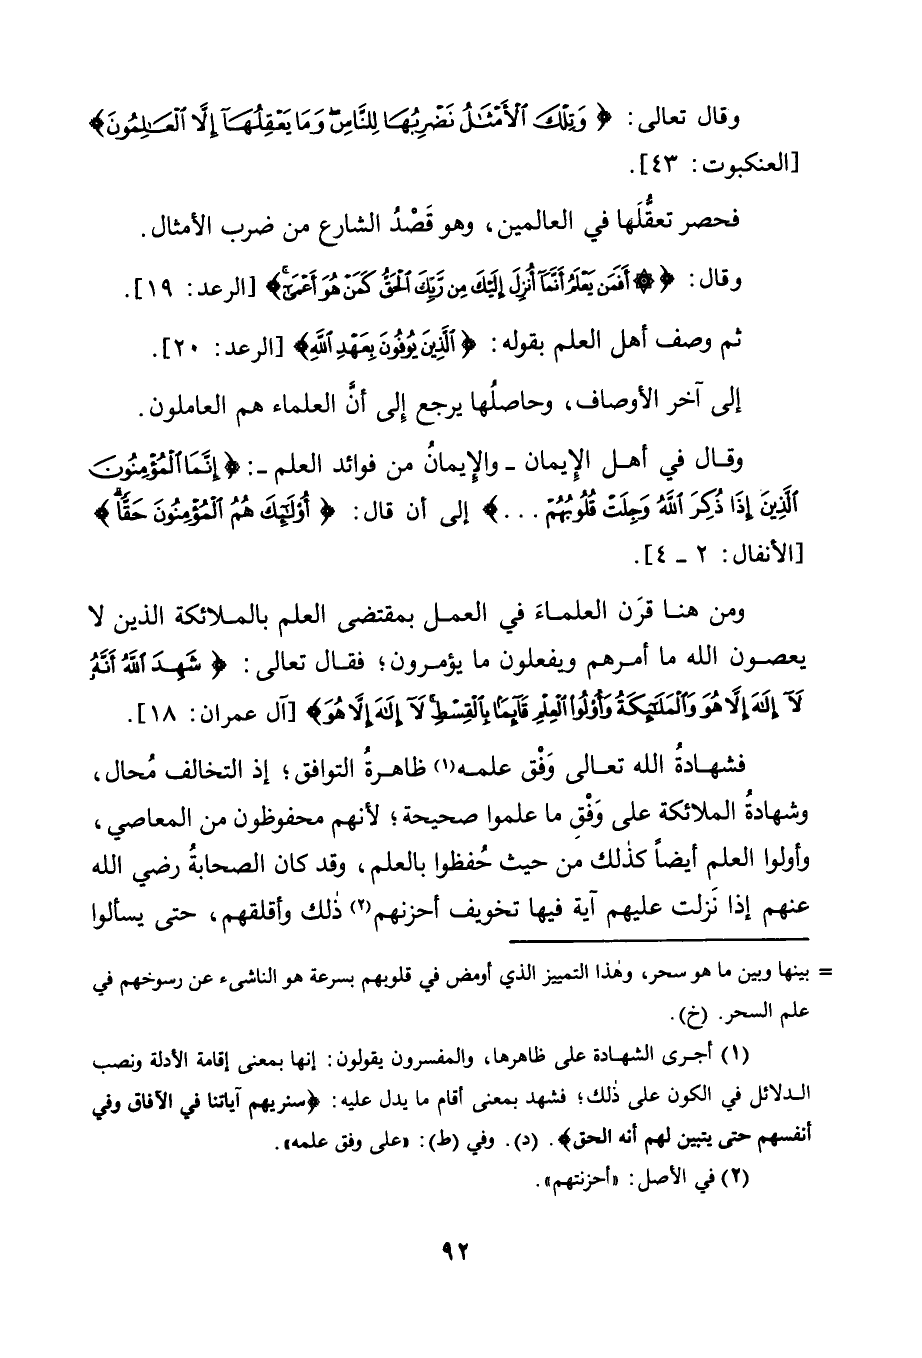 وقال تعالى: ﴿ وَتِلْكَ ٱلْأَمْثَـٰلُ نَضْرِبُهَا لِلنَّاسِ ۖ وَمَا يَعْقِلُهَآ إِلَّا ٱلْعَـٰلِمُونَ ﴾
[العنكبوت: ٤٣].
فحصر تعقُّلَها في العالمين، وهو قَصْدُ الشارع من ضرب الأمثال.
وقال: ﴿ ۞ أَفَمَن يَعْلَمُ أَنَّمَآ أُنزِلَ إِلَيْكَ مِن رَّبِّكَ ٱلْحَقُّ كَمَنْ هُوَ أَعْمَىٰٓ ۚ ﴾ [الرعد: ١٩].
ثم وصف أهل العلم بقوله: ﴿ ٱلَّذِينَ يُوفُونَ بِعَهْدِ ٱللَّهِ ﴾ [الرعد: ٢٠].
إلى آخر الأوصاف، وحاصلُها يرجع إلى أنَّ العلماء هم العاملون.
وقـال في أهـل الإيمان ـ والإيمانُ من فوائد العلم ـ: ﴿ إِنَّمَا ٱلْمُؤْمِنُونَ
ٱلَّذِينَ إِذَا ذُكِرَ ٱللَّهُ وَجِلَتْ قُلُوبُهُمْ ... ﴾ إلى أن قال: ﴿ أُو۟لَـٰٓئِكَ هُمُ ٱلْمُؤْمِنُونَ حَقًّا ۚ ﴾
[الأنفال: ٢ ـ ٤].
ومن هنـا قرَن العلمـاءَ في العمـل بمقتضى العلم بالمـلائكة الذين لا
يعصـون الله ما أمـرهم ويفعلون ما يؤمـرون؛ فقـال تعالى: ﴿ شَهِدَ ٱللَّهُ أَنَّهُۥ
لَآ إِلَـٰهَ إِلَّا هُوَ وَٱلْمَلَـٰٓئِكَةُ وَأُو۟لُوا۟ ٱلْعِلْمِ قَآئِمًۢا بِٱلْقِسْطِ ۚ لَآ إِلَـٰهَ إِلَّا هُوَ ﴾ [آل عمران: ١٨].
فشهـادةُ الله تعـالى وَفْق علمـه(١) ظاهـرةُ التوافق؛ إذ التخالف مُحال،
وشهادةُ الملائكة على وَفْقِ ما علموا صحيحة؛ لأنهم محفوظون من المعاصي،
وأولوا العلم أيضاً كذٰلك من حيث حُفظوا بالعلم، وقد كان الصحابةُ رضي الله
عنهم إذا نَزلت عليهم آية فيها تخويف أحزنهم(٢) ذٰلك وأقلقهم، حتى يسألوا
= بينها وبين ما هو سحر، وهٰذا التمييز الذي أومض في قلوبهم بسرعة هو الناشىء عن رسوخهم في
علم السحر. (خ).
(١) أجـرى الشهـادة على ظاهرها، والمفسرون يقولون: إنها بمعنى إقامة الأدلة ونصب
الـدلائل في الكون على ذٰلك؛ فشهد بمعنى أقام ما يدل عليه: ﴿سنريهم آياتنا في الآفاق وفي
أنفسهم حتى يتبين لهم أنه الحق﴾. (د). وفي (ط): «على وفق علمه».
(٢) في الأصل: «أحزنتهم».
٩٢